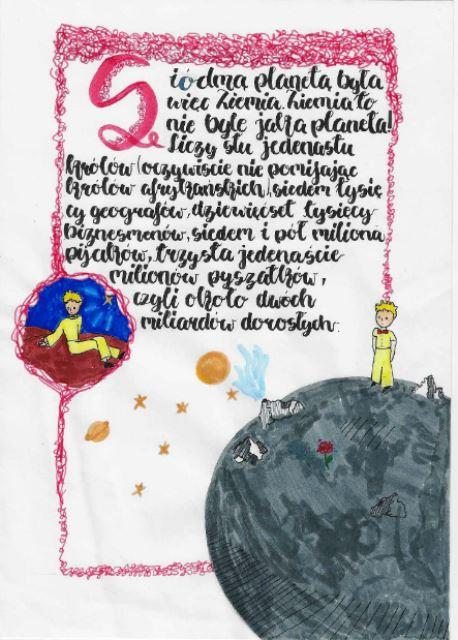 Siódmą planetą była
więc Ziemia. Ziemia to
nie byle jaka planeta!
Liczy stu jedenastu
królów (oczywiście nie pomijając
królów afrykańskich), siedem tysię
cy geografów, dziewięćset tysięcy
biznesmenów, siedem i pół miliona
pijaków, trzysta jedenaście
milionów pyszałków,
czyli około dwóch
miliardów dorosłych.